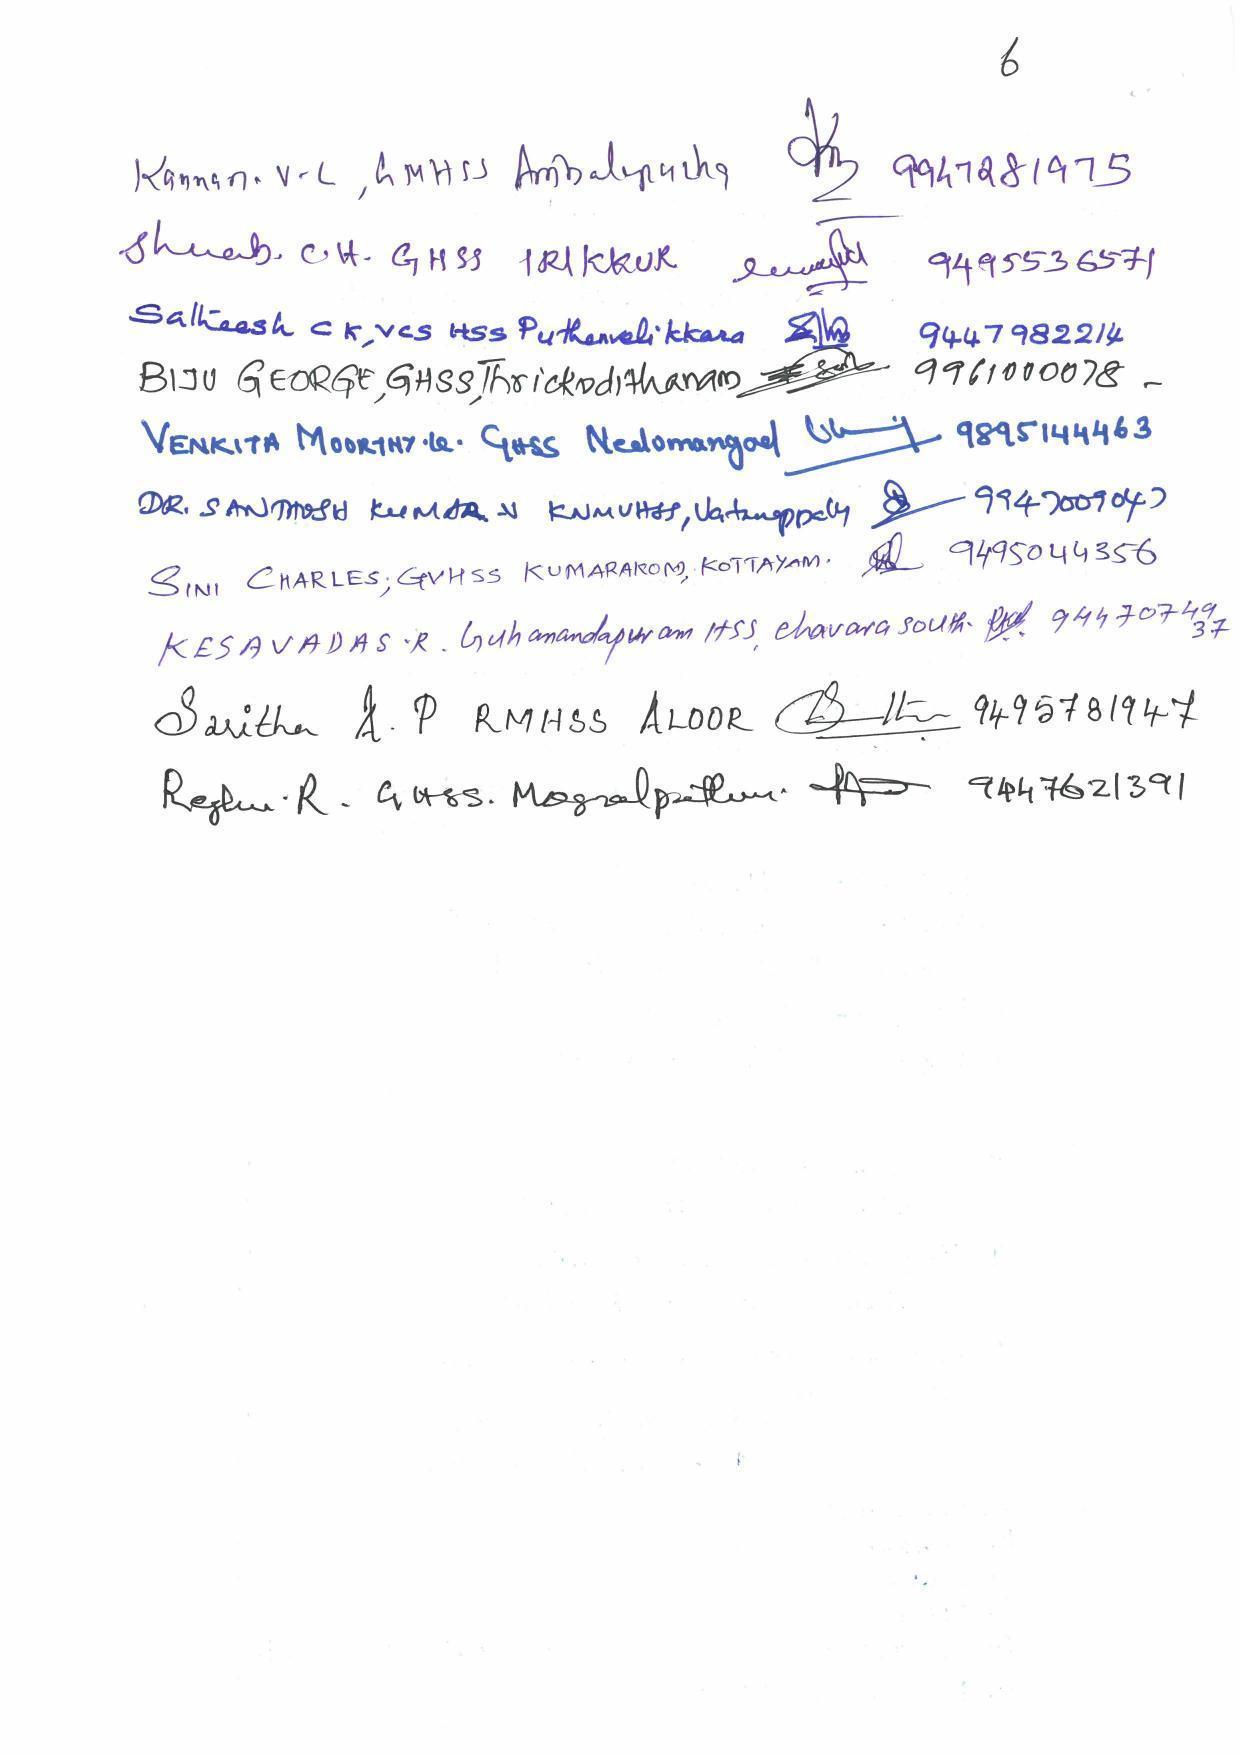 6
Kannan. V-L, GMHSS Ambalapuzha 9947281975
Shuab. C.H. GHSS IRIKKUR 9495536571
Satheesh C K, VCS HSS Puthenvelikkara 9447982214
BIJU GEORGE, GHSS, Thrickodithanam 9961000078 -
VENKITA MOORTHY. GHSS Nedomangad 9895144463
DR. SANTHOSH KUMAR. V KNMVHSS, Vatanappaly 9947009047
SINI CHARLES, GVHSS KUMARAKOM, KOTTAYAM. 9495044356
KESAVADAS. R. Guhanandapuram HSS, chavara south. 9447074937
Saritha A. P RMHSS ALOOR 9495781947
Reghu. R. GHSS. Mogralputhur. 9447621391